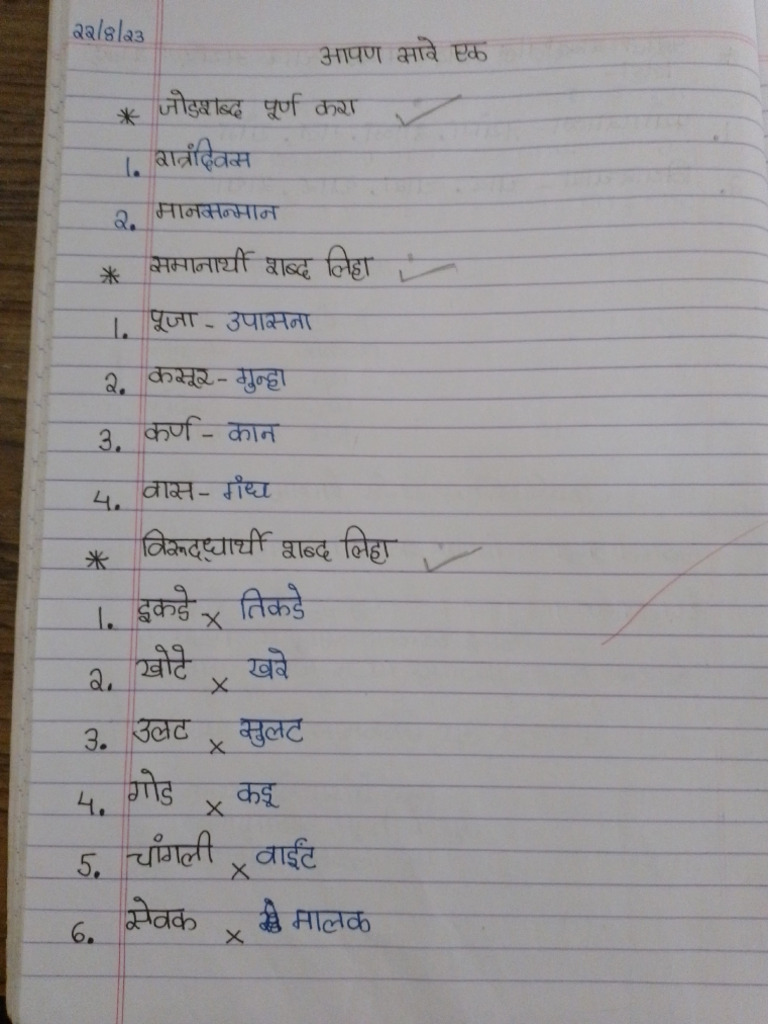 २२/8/२3
आपण सारे एक
* जोडशब्द पूर्ण करा
1. रात्रंदिवस
2. मानसन्मान
* समानार्थी शब्द लिहा
1. पूजा - उपासना
2. कसूर - गुन्हा
3. कर्ण - कान
4. वास - गंध
* विरूद्धार्थी शब्द लिहा
1. इकडे x तिकडे
2. खोटे x खरे
3. उलट x सुलट
4. गोड x कडू
5. चांगली x वाईट
6. सेवक x मालक